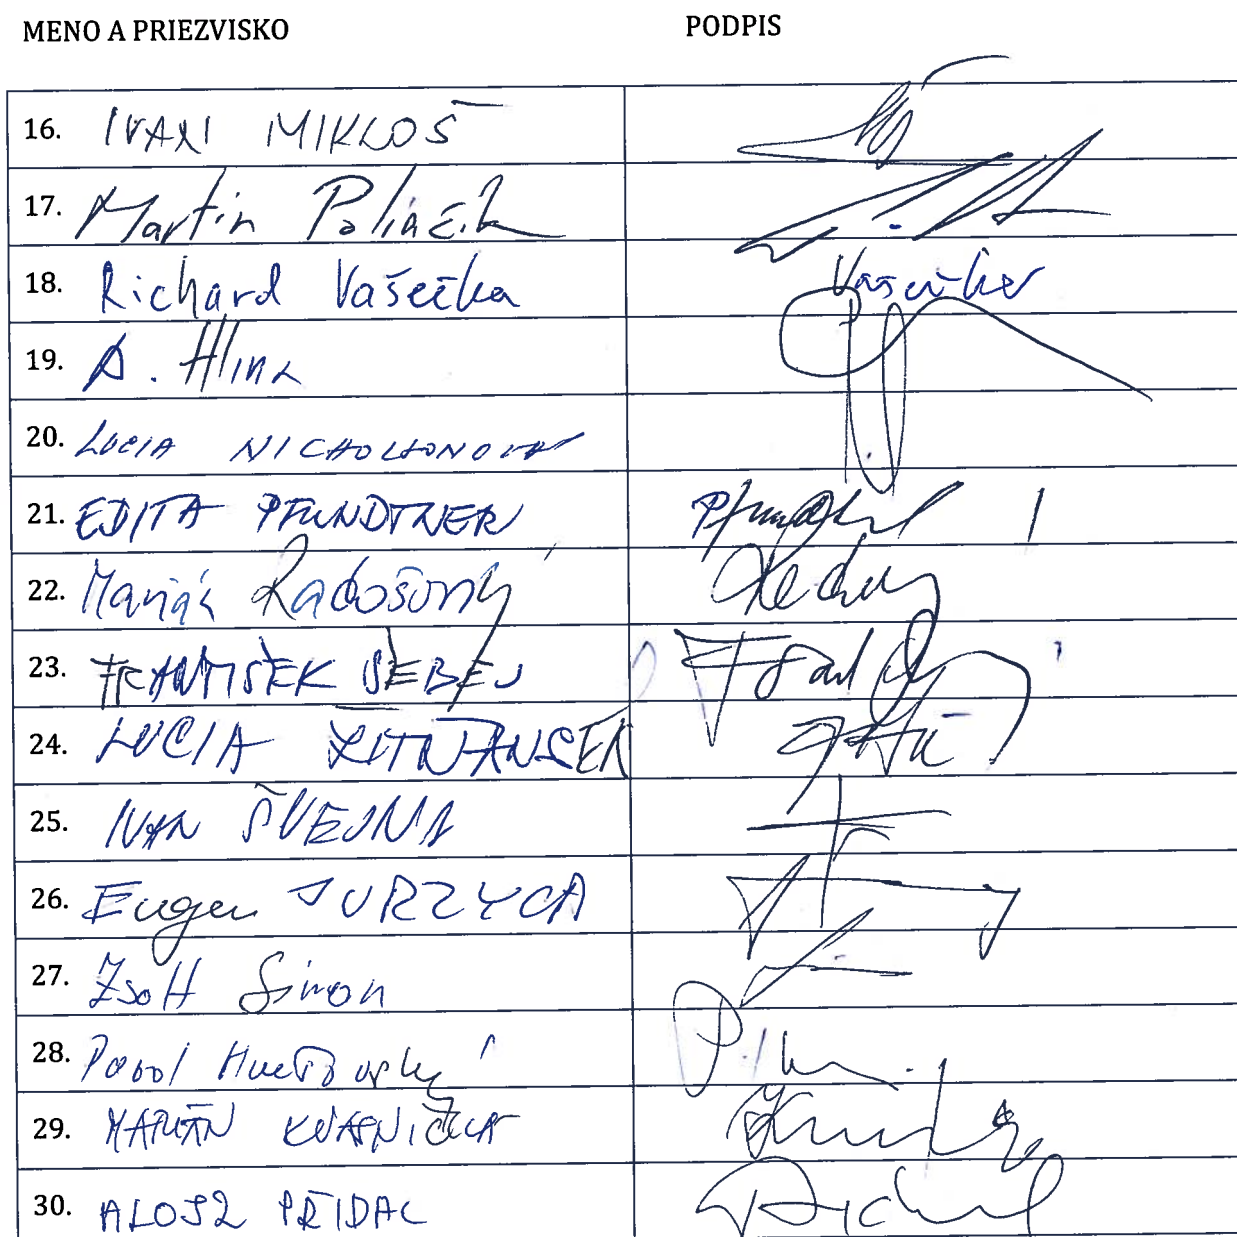 MENO A PRIEZVISKO PODPIS
16. IVAN MIKLOŠ
17. Martin Poliačik
18. Richard Vašečka Vašečka
19. A. Hlina
20. LUCIA NICHOLSONOVÁ
21. EDITA PFUNDTNER
22. Marián Radošovský
23. FRANTIŠEK ŠEBEJ
24. LUCIA ŽITŇANSKÁ
25. IVAN ŠVEJNA
26. Eugen JURZYCA
27. Zsolt Simon
28. Pavol Hučťovský
29. MARIÁN KVASNIČKA
30. ALOJZ PŘIDAL